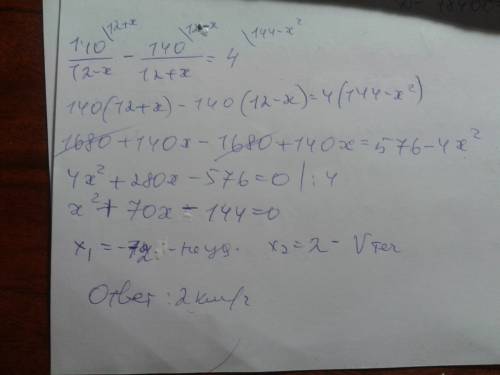 140/(12-x) \12+x - 140/(12+x) \12-x = 4 \144-x²
140(12+x) - 140(12-x) = 4(144-x²)
1680+140x-1680+140x=576-4x²
4x²+280x-576=0 |:4
x²+70x-144=0
x₁=-72 - не уд. x₂=2 - Vтеч
Ответ: 2км/ч